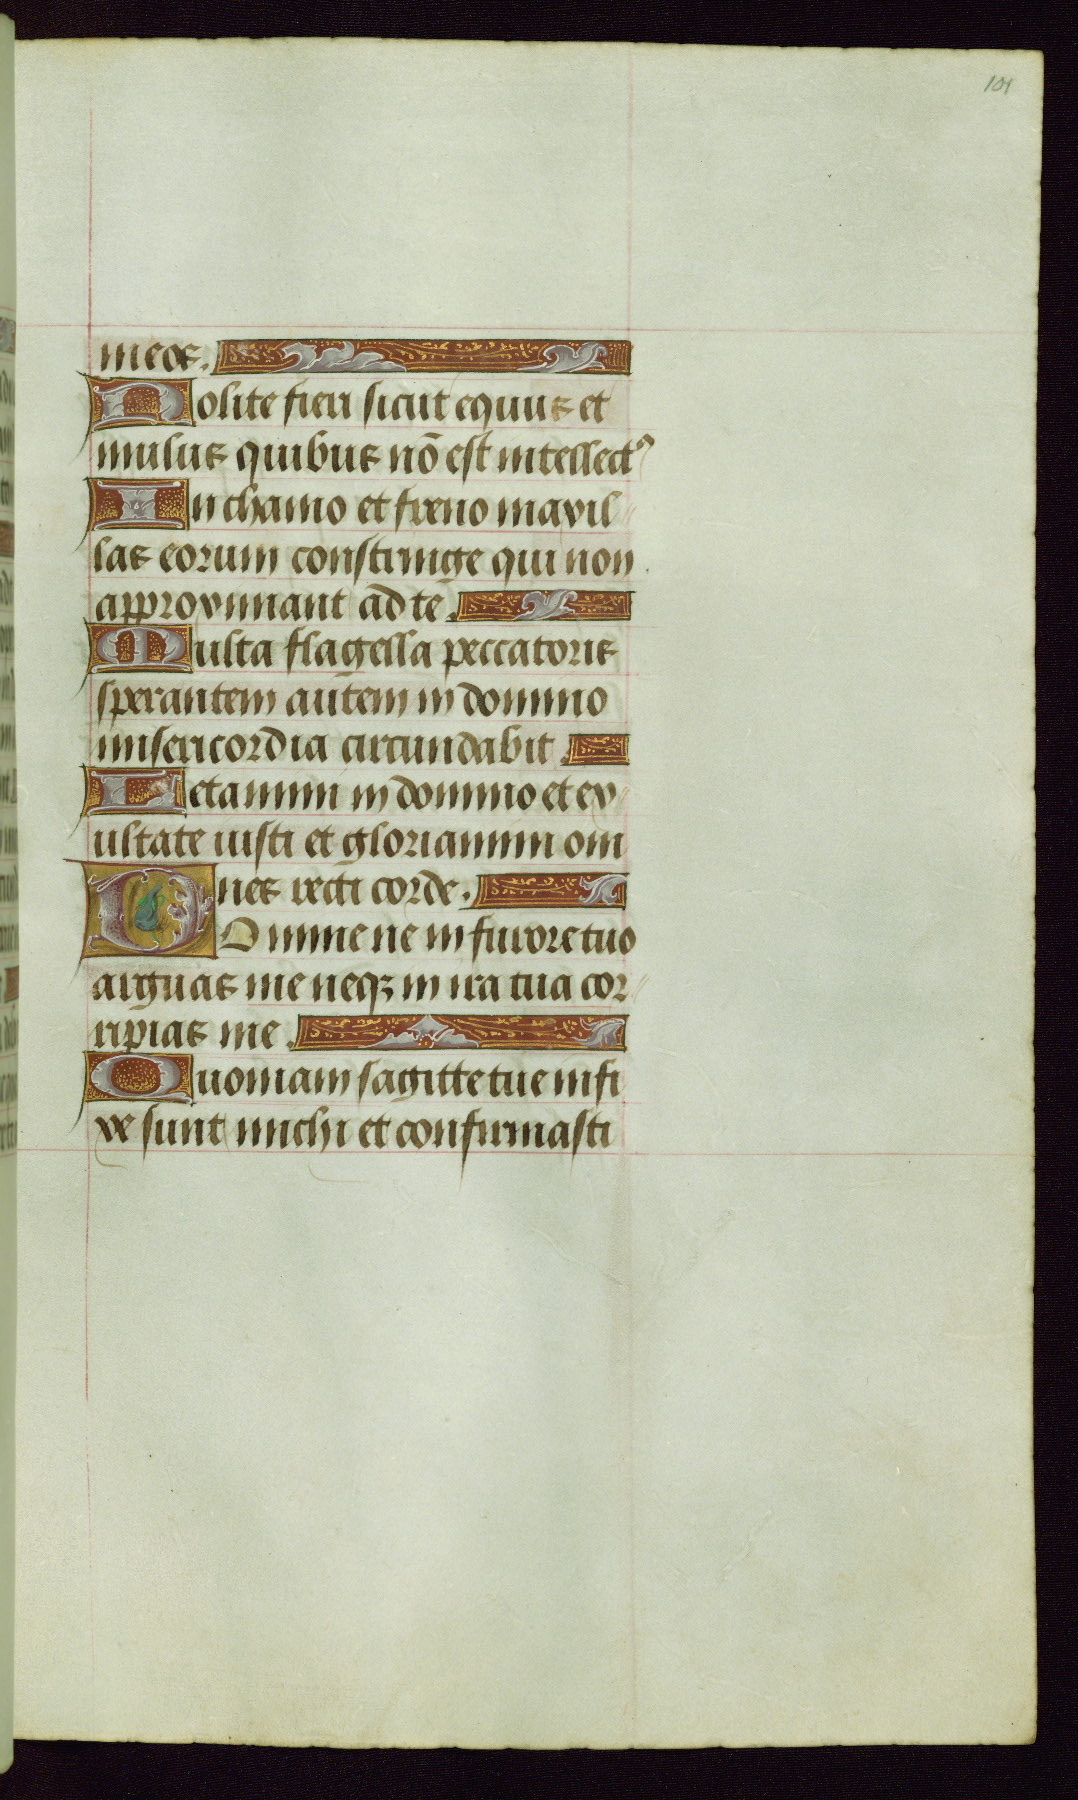 101
meos.
Nolite fieri sicut equus et
mulus quibus nō est intellectꝰ
In chamo et freno maxil
las eorum constringe qui non
approximant ad te.
Multa flagella peccatoris
sperantem autem in domino
misericordia circundabit.
Letamini in domino et ex
ultate iusti et gloriamini om
nes recti corde.
Domine ne in furore tuo
arguas me neqꝫ in ira tua cor
ripias me.
Quoniam sagitte tue infi
xe sunt michi et confirmasti